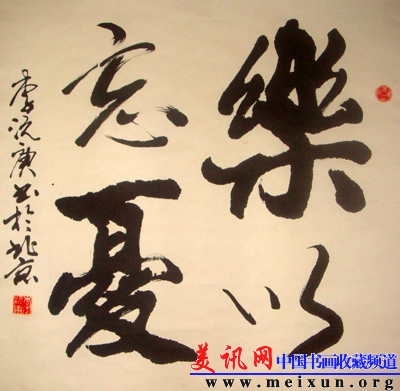 樂以
忘憂
李沅庚书於北京
美讯网 中国书画收藏频道
www.meixun.org